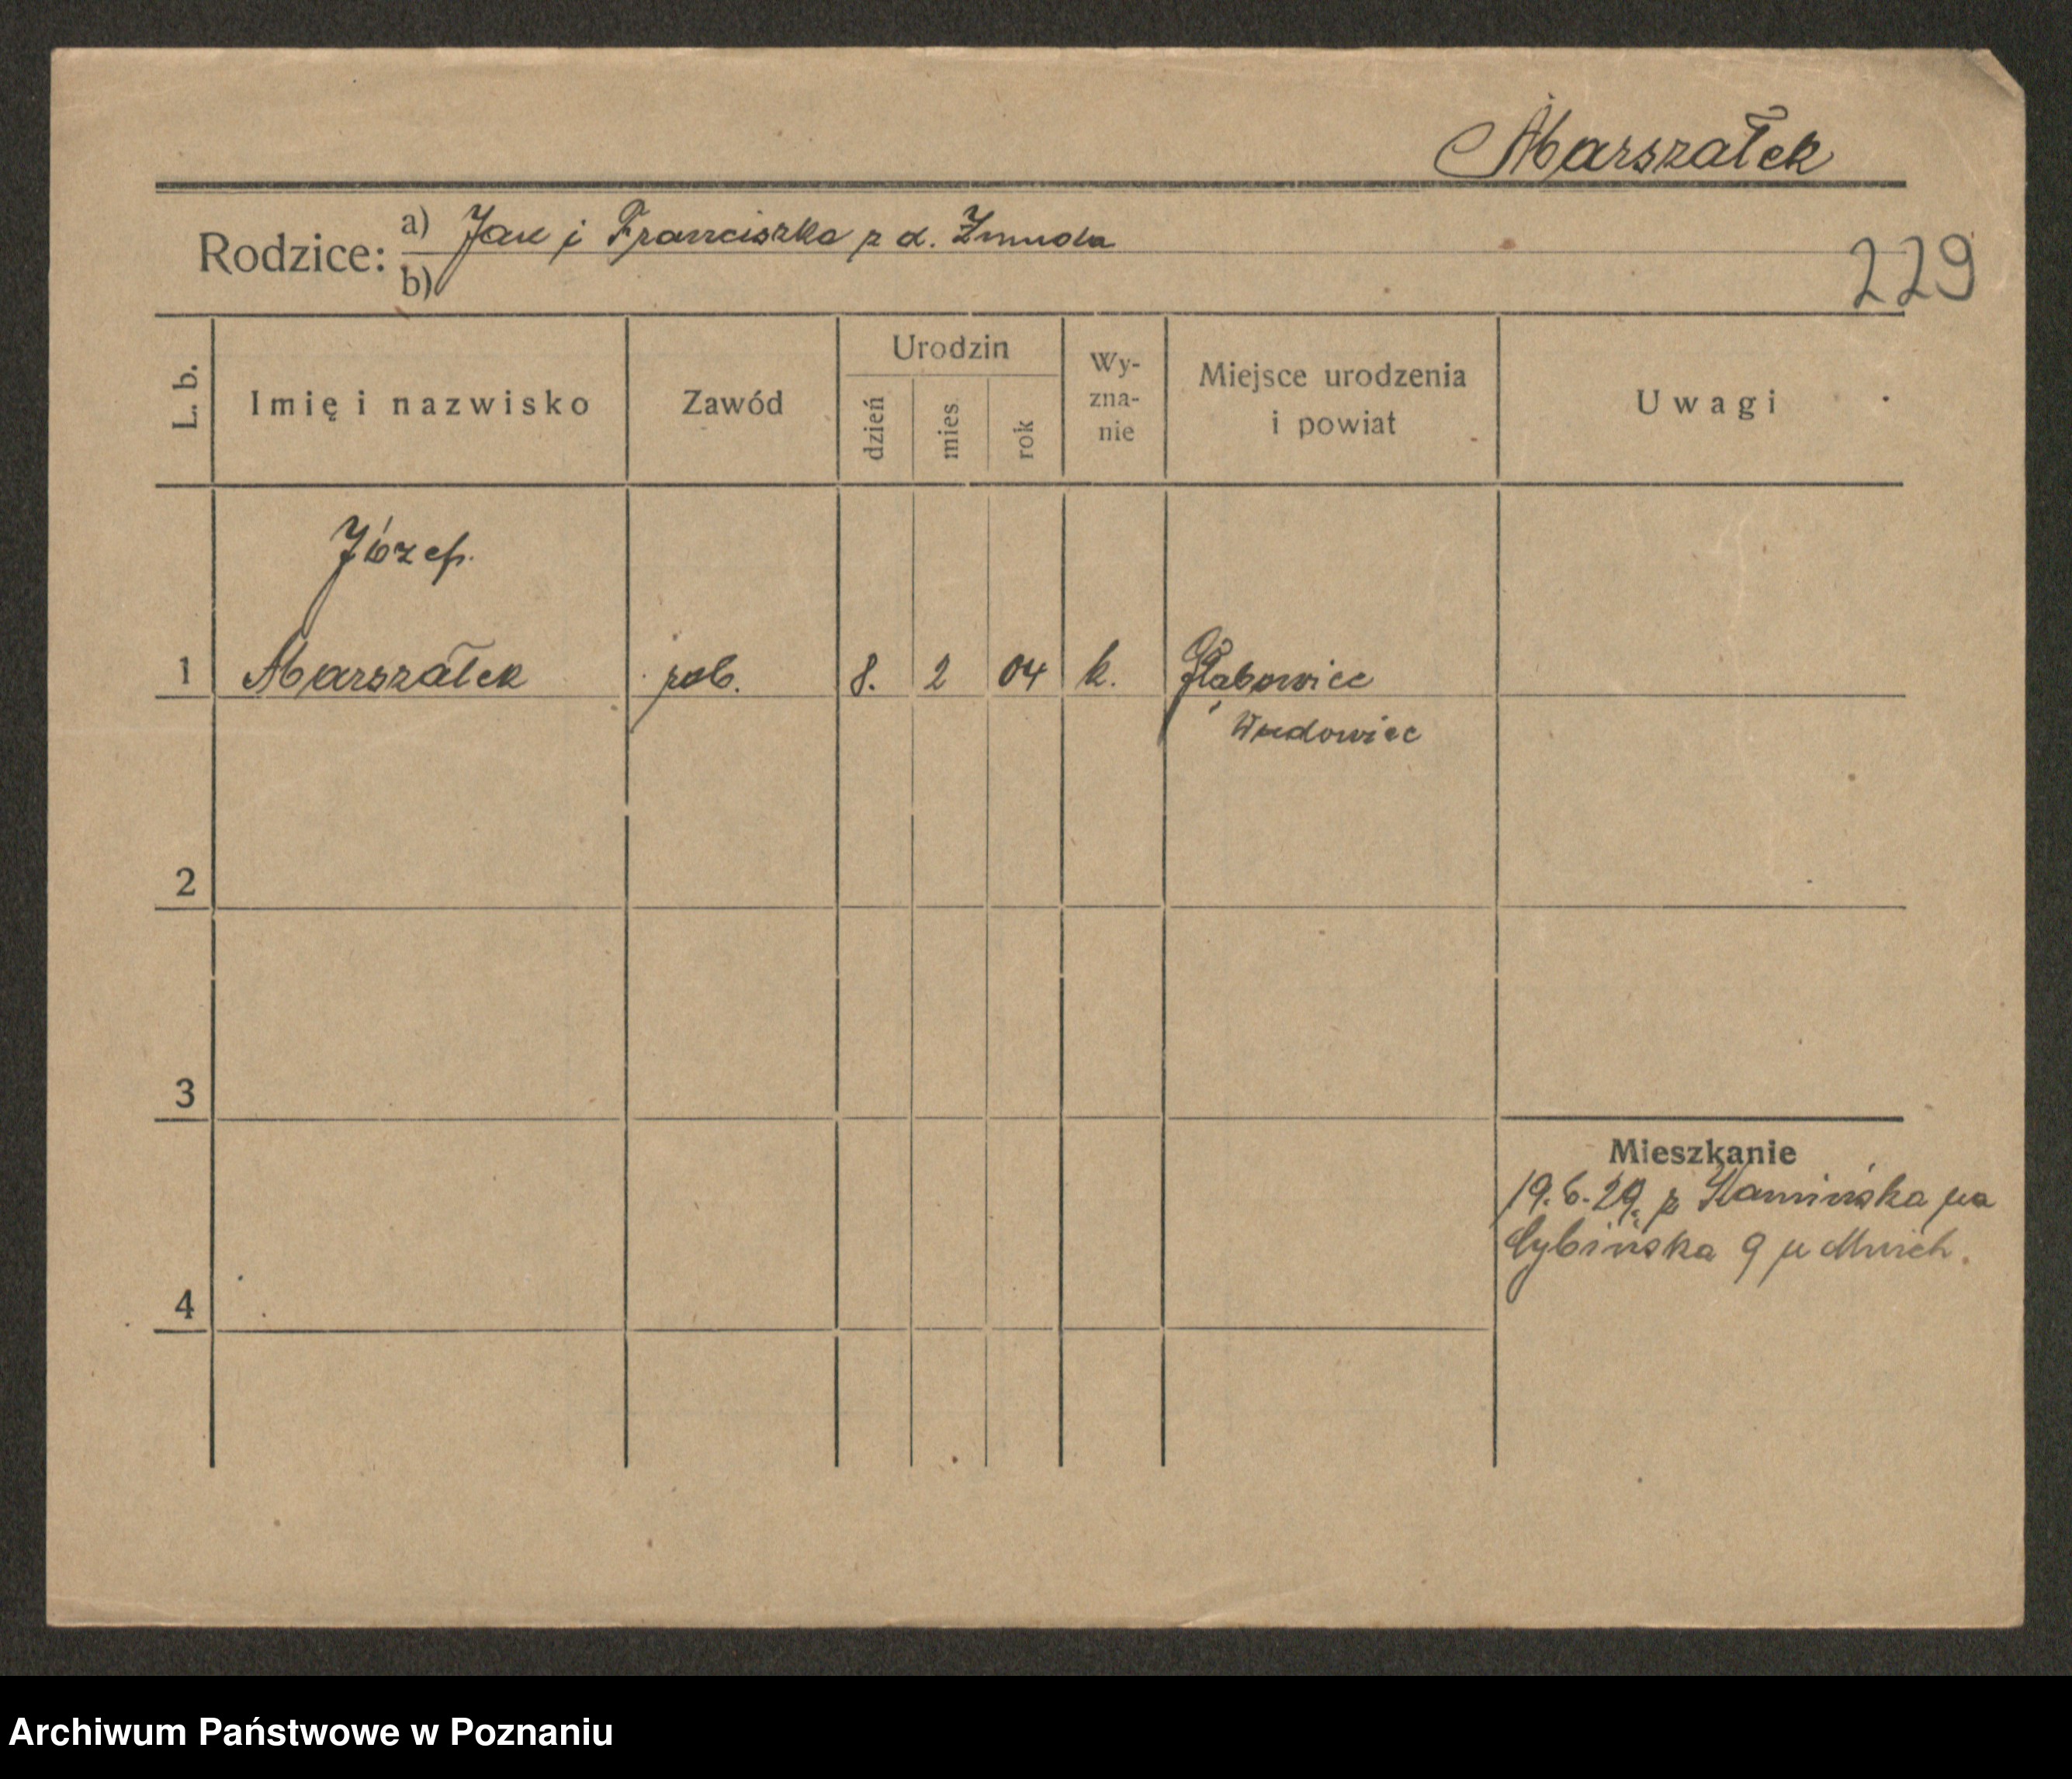 Marszałek
Rodzice: a) Jan i Franciszka z d. Żmuda
b)
229
L. b.
Imię i nazwisko
Zawód
Urodzin
dzień
mies.
rok
Wy-
zna-
nie
Miejsce urodzenia
i powiat
Uwagi
Józef.
1 Marszałek rob. 8. 2 04 k. Głąbowice
Wadowice
2
3
Mieszkanie
19.6.29. z Kamińska na
Cybińska 9 u Mnich.
4
Archiwum Państwowe w Poznaniu